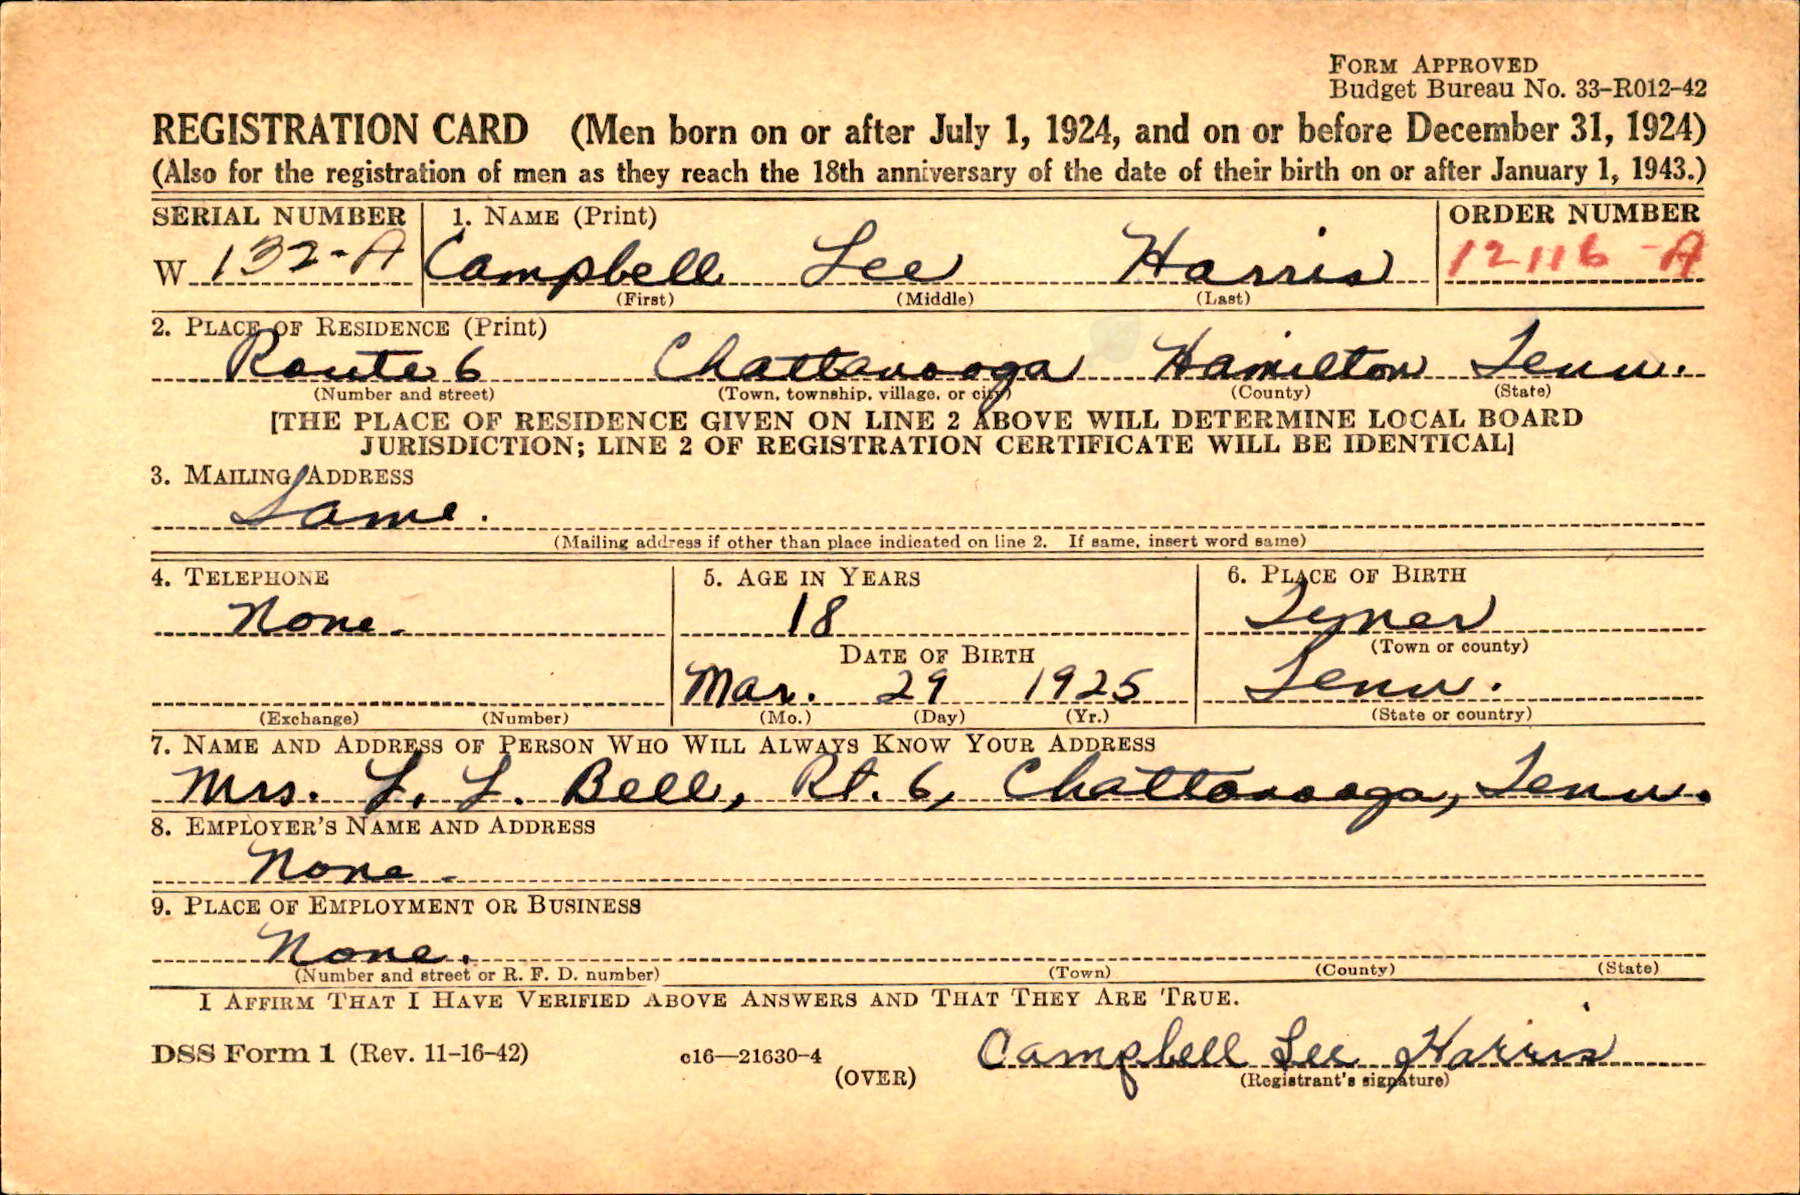 FORM APPROVED
Budget Bureau No. 33-R012-42
REGISTRATION CARD (Men born on or after July 1, 1924, and on or before December 31, 1924)
(Also for the registration of men as they reach the 18th anniversary of the date of their birth on or after January 1, 1943.)
SERIAL NUMBER 1. NAME (Print) ORDER NUMBER
W 132-A Campbell Lee Harris 12116-A
(First) (Middle) (Last)
2. PLACE OF RESIDENCE (Print)
Route 6 Chattanooga Hamilton Tenn.
(Number and street) (Town, township, village, or city) (County) (State)
[THE PLACE OF RESIDENCE GIVEN ON LINE 2 ABOVE WILL DETERMINE LOCAL BOARD
JURISDICTION; LINE 2 OF REGISTRATION CERTIFICATE WILL BE IDENTICAL]
3. MAILING ADDRESS
Same.
(Mailing address if other than place indicated on line 2. If same, insert word same)
4. TELEPHONE 5. AGE IN YEARS 6. PLACE OF BIRTH
None. 18 Tyner
DATE OF BIRTH (Town or county)
Mar. 29 1925 Tenn.
(Exchange) (Number) (Mo.) (Day) (Yr.) (State or country)
7. NAME AND ADDRESS OF PERSON WHO WILL ALWAYS KNOW YOUR ADDRESS
Mrs. L. L. Bell, Rt. 6, Chattanooga, Tenn.
8. EMPLOYER'S NAME AND ADDRESS
None.
9. PLACE OF EMPLOYMENT OR BUSINESS
None.
(Number and street or R. F. D. number) (Town) (County) (State)
I AFFIRM THAT I HAVE VERIFIED ABOVE ANSWERS AND THAT THEY ARE TRUE.
DSS Form 1 (Rev. 11-16-42) c16—21630-4 Campbell Lee Harris
(OVER) (Registrant's signature)